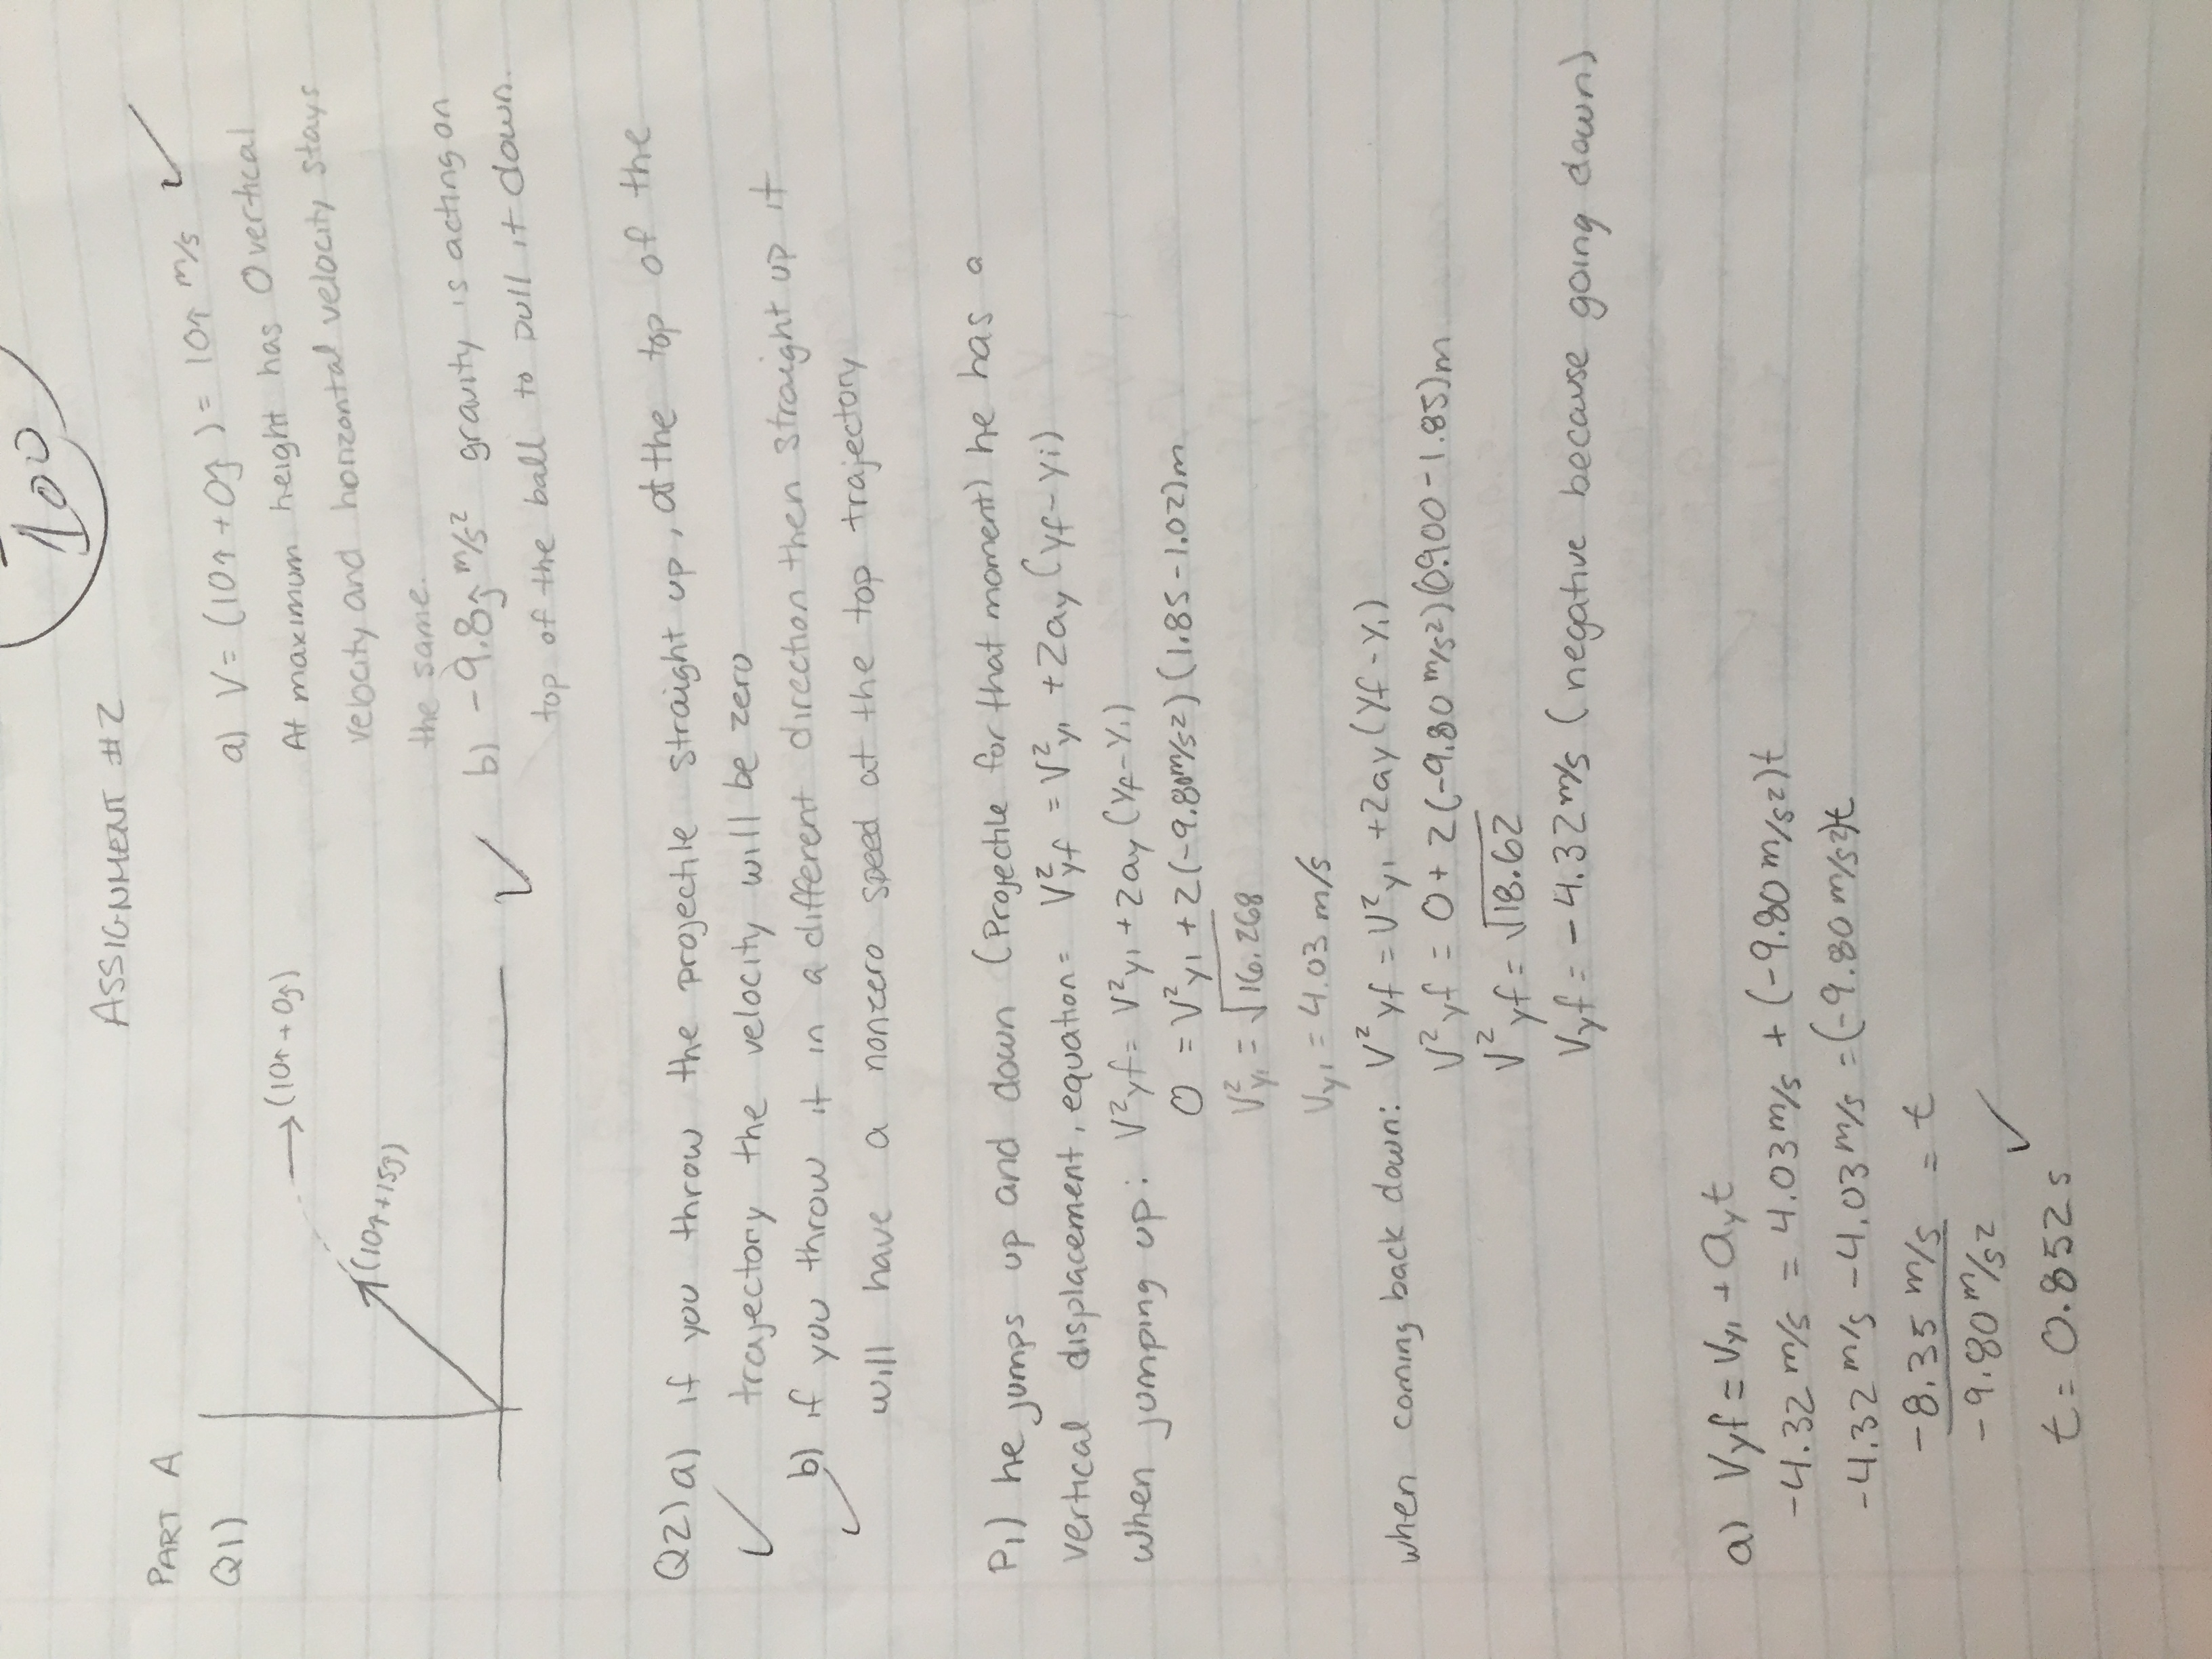 100
ASSIGNMENT #2
PART A
Q1)
→(10î + 0ĵ)
(10î+15ĵ)
a) V = (10î + 0ĵ) = 10î m/s ✓
At maximum height has 0 vertical
velocity and horizontal velocity stays
the same.
✓ b) -9.8ĵ m/s² gravity is acting on
top of the ball to pull it down.
Q2) a) if you throw the projectile straight up, at the top of the
✓ trajectory the velocity will be zero
b) if you throw it in a different direction then straight up it
✓ will have a nonzero speed at the top trajectory
P1) he jumps up and down (Projectile for that moment) he has a
vertical displacement, equation = V²yf = V²yi + 2ay(yf-yi)
when jumping up: V²yf = V²yi + 2ay(yf-yi)
0 = V²yi + 2(-9.80m/s²)(1.85-1.02)m
V²yi = √16.268
Vyi = 4.03 m/s
when coming back down: V²yf = V²yi + 2ay(yf-yi)
V²yf = 0 + 2(-9.80 m/s²)(0.900-1.85)m
V²yf = √18.62
Vyf = -4.32 m/s (negative because going down)
a) Vyf = Vyi + ayt
-4.32 m/s = 4.03 m/s + (-9.80 m/s²)t
-4.32 m/s - 4.03 m/s = (-9.80 m/s²)t
-8.35 m/s = t
-9.80 m/s²
t = 0.852 s ✓